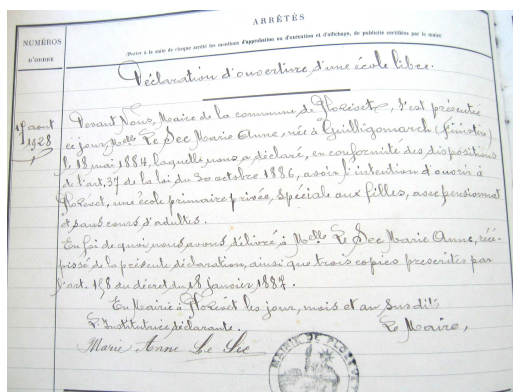 ARRÊTÉS
(Porter à la suite de chaque arrêté les mentions d'approbation ou d'exécution et d'affichage, de publicité certifiées par le maire
NUMÉROS
D'ORDRE
Déclaration d'ouverture d'une école libre.
17 août
1928
Devant Nous, Maire de la commune de Plonévet, s'est présentée
ce jour, Melle Le Sec Marie Anne, née à Guilligomarch (finistère)
le 18 mai 1884, laquelle nous a déclaré, en conformité des dispositions
de l'art. 37 de la loi du 30 octobre 1886, avoir l'intention d'ouvrir à
Plonévet, une école primaire privée, spéciale aux filles, avec pensionnat
et sans cours d'adultes.
En foi de quoi, nous avons délivré à Melle Le Sec Marie Anne, récé-
pissé de la présente déclaration, ainsi que trois copies prescrites par
l'art. 158 du décret du 18 janvier 1887.
En Mairie à Plonévet les jour, mois et an, susdits
L'Institutrice déclarante.
Le Maire,
Marie Anne Le Sec
MAIRIE DE